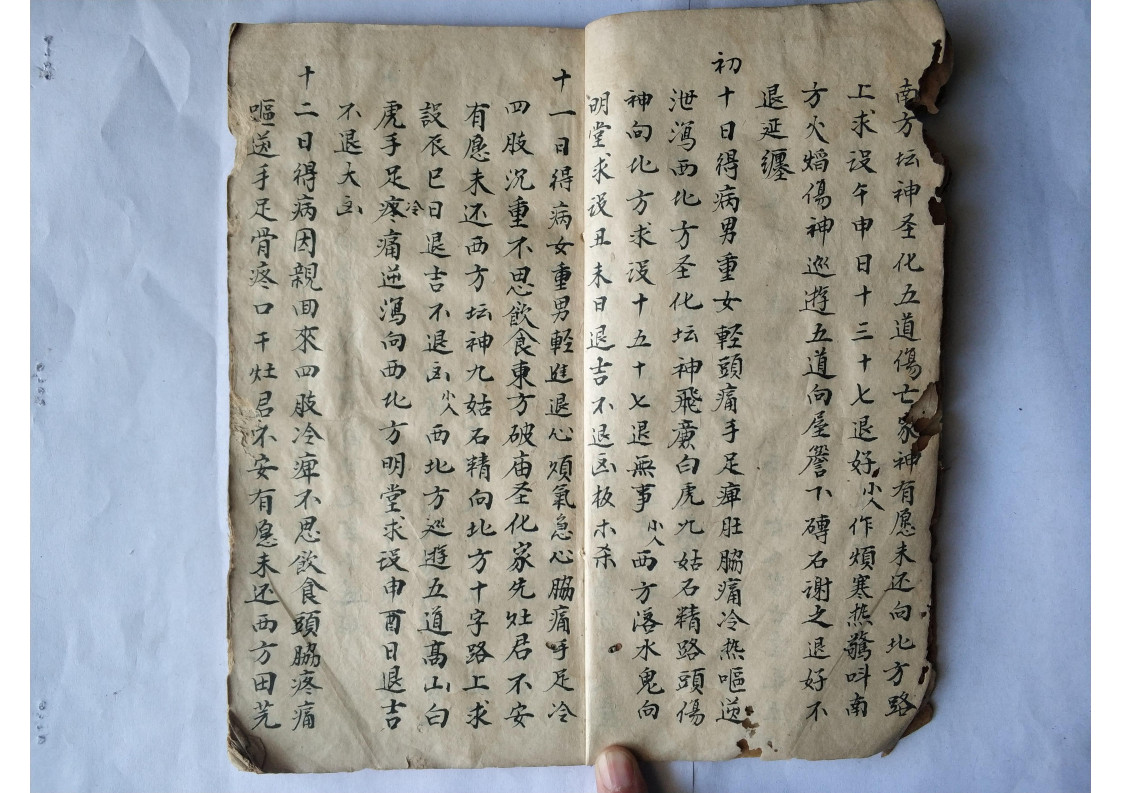 南方坛神圣化五道傷亡家神有愿未还向北方路
上求设午申日十三十七退好小人作煩寒热驚叫南
方火焰傷神巡遊五道向屋簷下磚石谢之退好不
退延纏
初十日得病男重女輕頭痛手足痺肚脇痛冷热嘔逆
泄瀉西北方圣化坛神飛廣白虎九姑石精路頭傷
神向北方求设十五十七退無事小人西方落水鬼向
明堂求设丑未日退吉不退凶板木杀
十一日得病女重男輕進退心煩氣急心脇痛手足冷
四肢沉重不思飲食東方破庙圣化家先灶君不安
有愿未还西方坛神九姑石精向北方十字路上求
設辰巳日退吉不退凶小人西北方巡遊五道高山白
虎手足疼冷痛逆瀉向西北方明堂求设申酉日退吉
不退大凶
十二日得病因親回來四肢冷痺不思飲食頭脇疼痛
嘔逆手足骨疼口干灶君不安有愿未还西方田芫